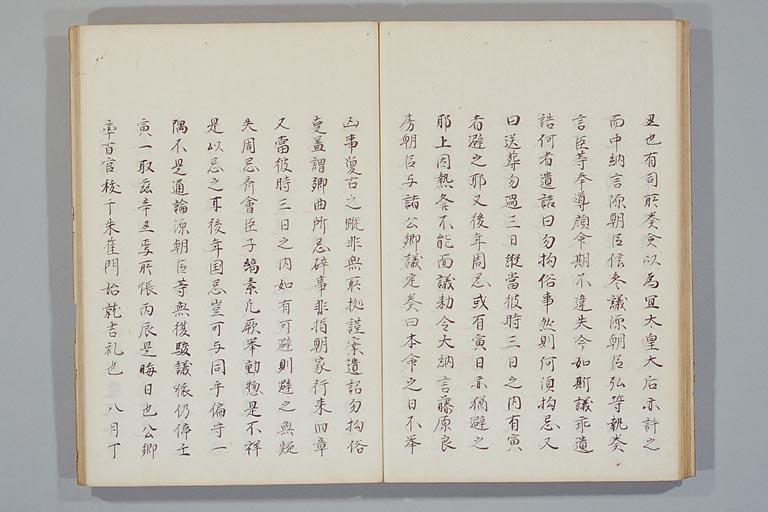 丑也有司所奏僉以為宜太皇太后亦許之
而中納言源朝臣信参議源朝臣弘等執奏
言臣等奉導顧命期不違失今如斯議乖遺
詰何者遺詰曰勿拘俗事然則何須拘忌又
曰送葬勿過三日縱當彼時三日之内有寅
者避之耶又後年周忌或有寅日亦猶避之
耶上因熱發不能面議勅令大納言藤原良
房朝臣与諸公卿議定奏曰本命之日不挙
凶事復古之蹤非無所拠謹案遺詔勿拘俗
事蓋謂鄉曲所忌碎事非指朝家行来旧章
又當彼時三日之内如有可避則避之無疑
失周忌斉會臣子縞素凡厥挙動惣是不祥
是以忌之耳後年国忌豈可与同乎偏守一
隅不是通論源朝臣等無復駿議依仍停壬
寅一取茲辛丑受所帳丙辰是晦日也公卿
率百官校于朱雀門始就吉礼也 八月丁